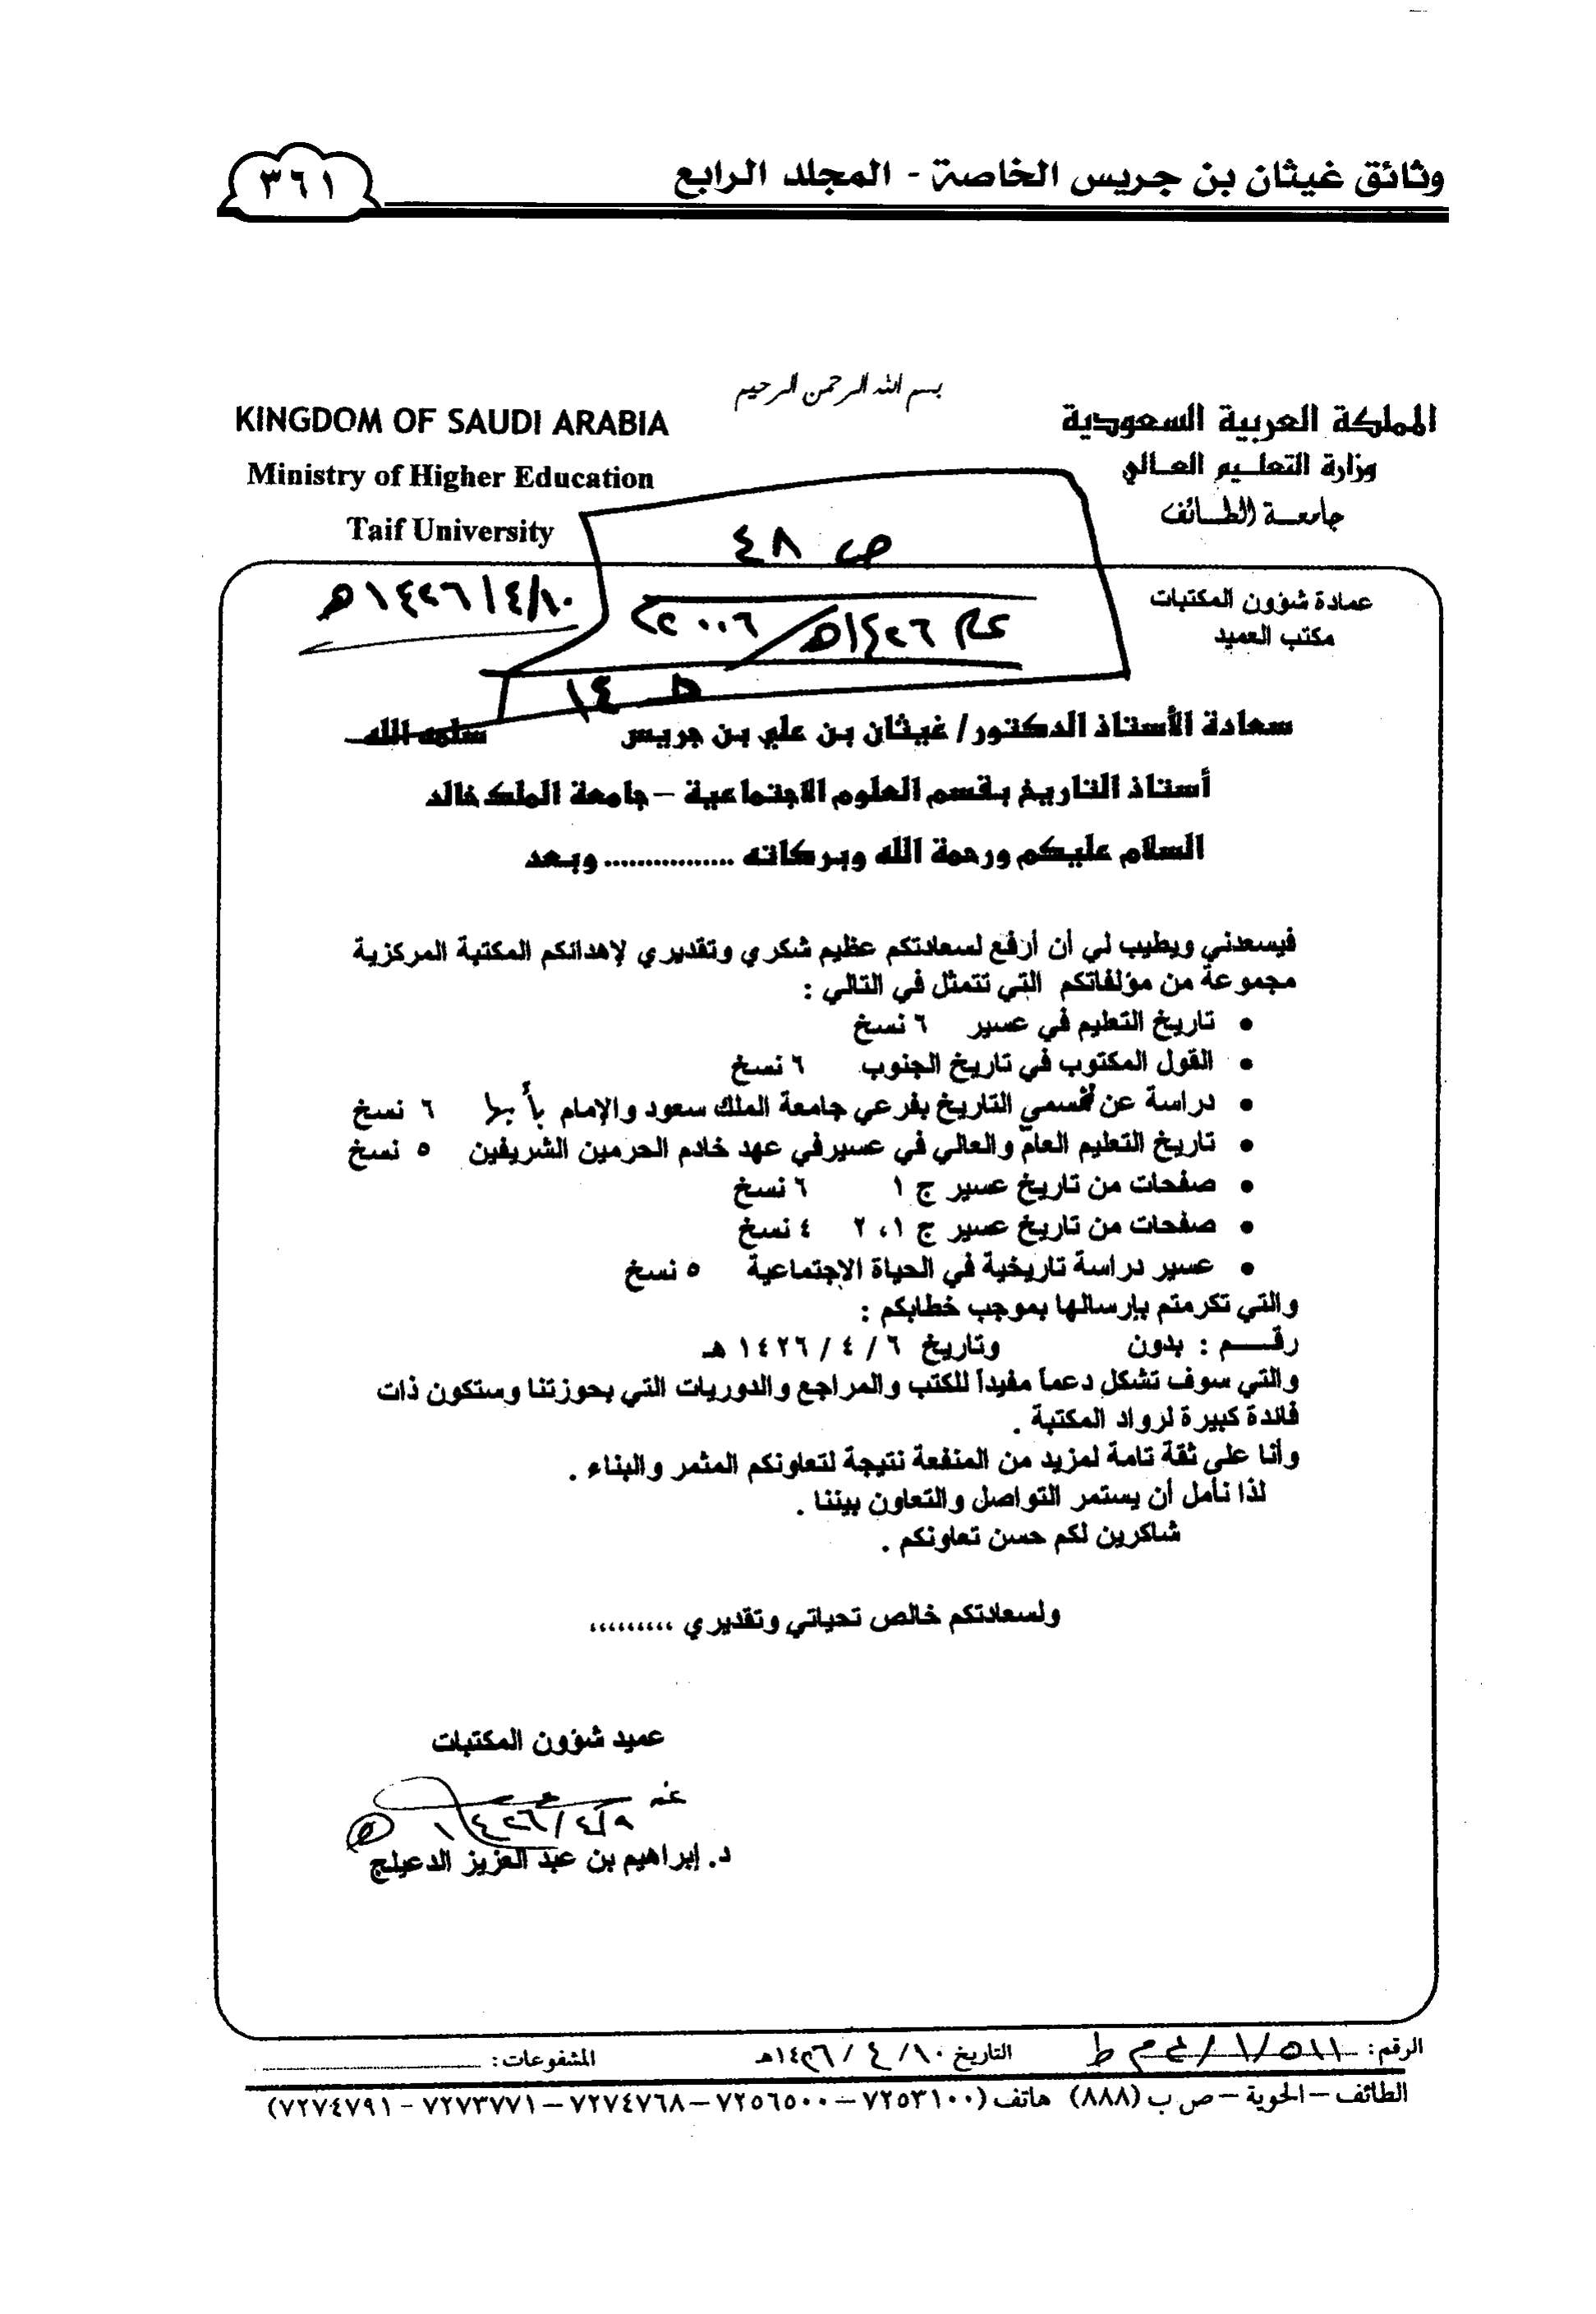 وثائق غيثان بن جريس الخاصة - المجلد الرابع
٣٦١
بسم الله الرحمن الرحيم
المملكة العربية السعودية
KINGDOM OF SAUDI ARABIA
وزارة التعليم العالي
Ministry of Higher Education
جامعة الطائف
Taif University
ص ٤٨
عمادة شؤون المكتبات
مكتب العميد
١٤٢٦/٤/١٠هـ
١٤٢٦هـ/٢٠٠٦م
سعادة الأستاذ الدكتور/ غيثان بن علي بن جريس سلمه الله
أستاذ التاريخ بقسم العلوم الاجتماعية – جامعة الملك خالد
السلام عليكم ورحمة الله وبركاته ................ وبعد
فيسعدني ويطيب لي أن أرفع لسعادتكم عظيم شكري وتقديري لإهدائكم المكتبة المركزية
مجموعة من مؤلفاتكم التي تتمثل في التالي :
• تاريخ التعليم في عسير ٦ نسخ
• القول المكتوب في تاريخ الجنوب ٦ نسخ
• دراسة عن قسمي التاريخ بفرعي جامعة الملك سعود والإمام بأبها ٦ نسخ
• تاريخ التعليم العام والعالي في عسير في عهد خادم الحرمين الشريفين ٥ نسخ
• صفحات من تاريخ عسير ج ١ ٦ نسخ
• صفحات من تاريخ عسير ج ١، ٢ ٤ نسخ
• عسير دراسة تاريخية في الحياة الإجتماعية ٥ نسخ
والتي تكرمتم بإرسالها بموجب خطابكم :
رقـــم : بدون وتاريخ ٦ / ٤ / ١٤٢٦ هـ
والتي سوف تشكل دعماً مفيداً للكتب والمراجع والدوريات التي بحوزتنا وستكون ذات
فائدة كبيرة لرواد المكتبة .
وأنا على ثقة تامة لمزيد من المنفعة نتيجة لتعاونكم المثمر والبناء .
لذا نأمل أن يستمر التواصل والتعاون بيننا .
شاكرين لكم حسن تعاونكم .
ولسعادتكم خالص تحياتي وتقديري .........
عميد شؤون المكتبات
١٤٢٦/٤/٩هـ
د. إبراهيم بن عبد العزيز الدعيلج
الرقم: التاريخ ١٠/ ٤ / ١٤٢٦هـ المشفوعات:
الطائف – الحوية – ص ب (٨٨٨) هاتف (٧٢٥٣١٠٠ – ٧٢٥٦٥٠٠ – ٧٢٧٤٧٦٨ – ٧٢٧٣٧٧١ - ٧٢٧٤٧٩١)